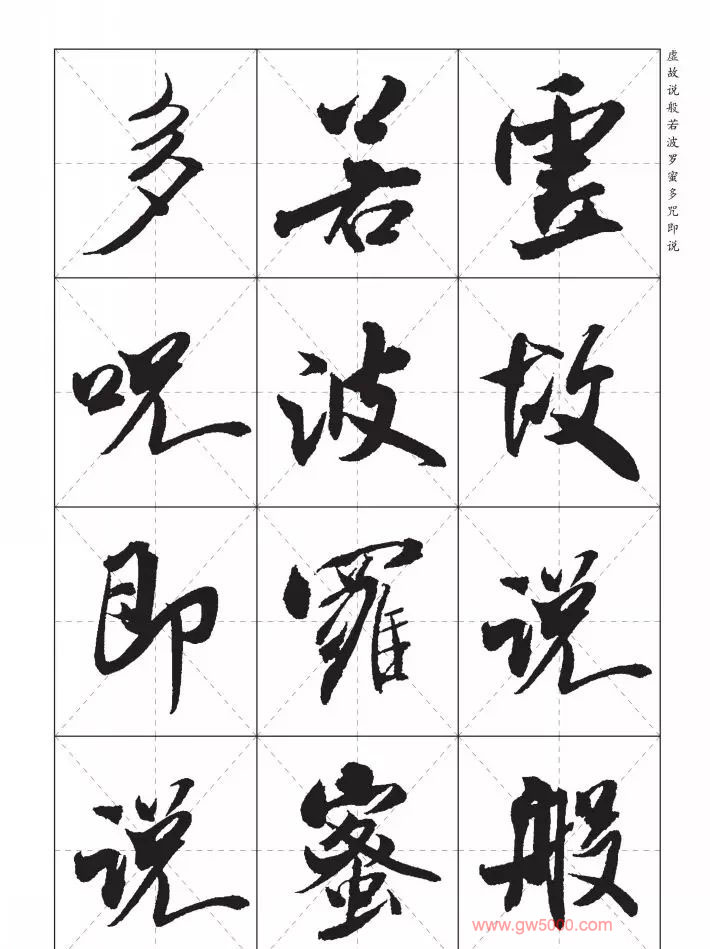 虚故说般若波罗蜜多咒即说
虚故说般
若波羅蜜
多咒即说
www.gw5000.com